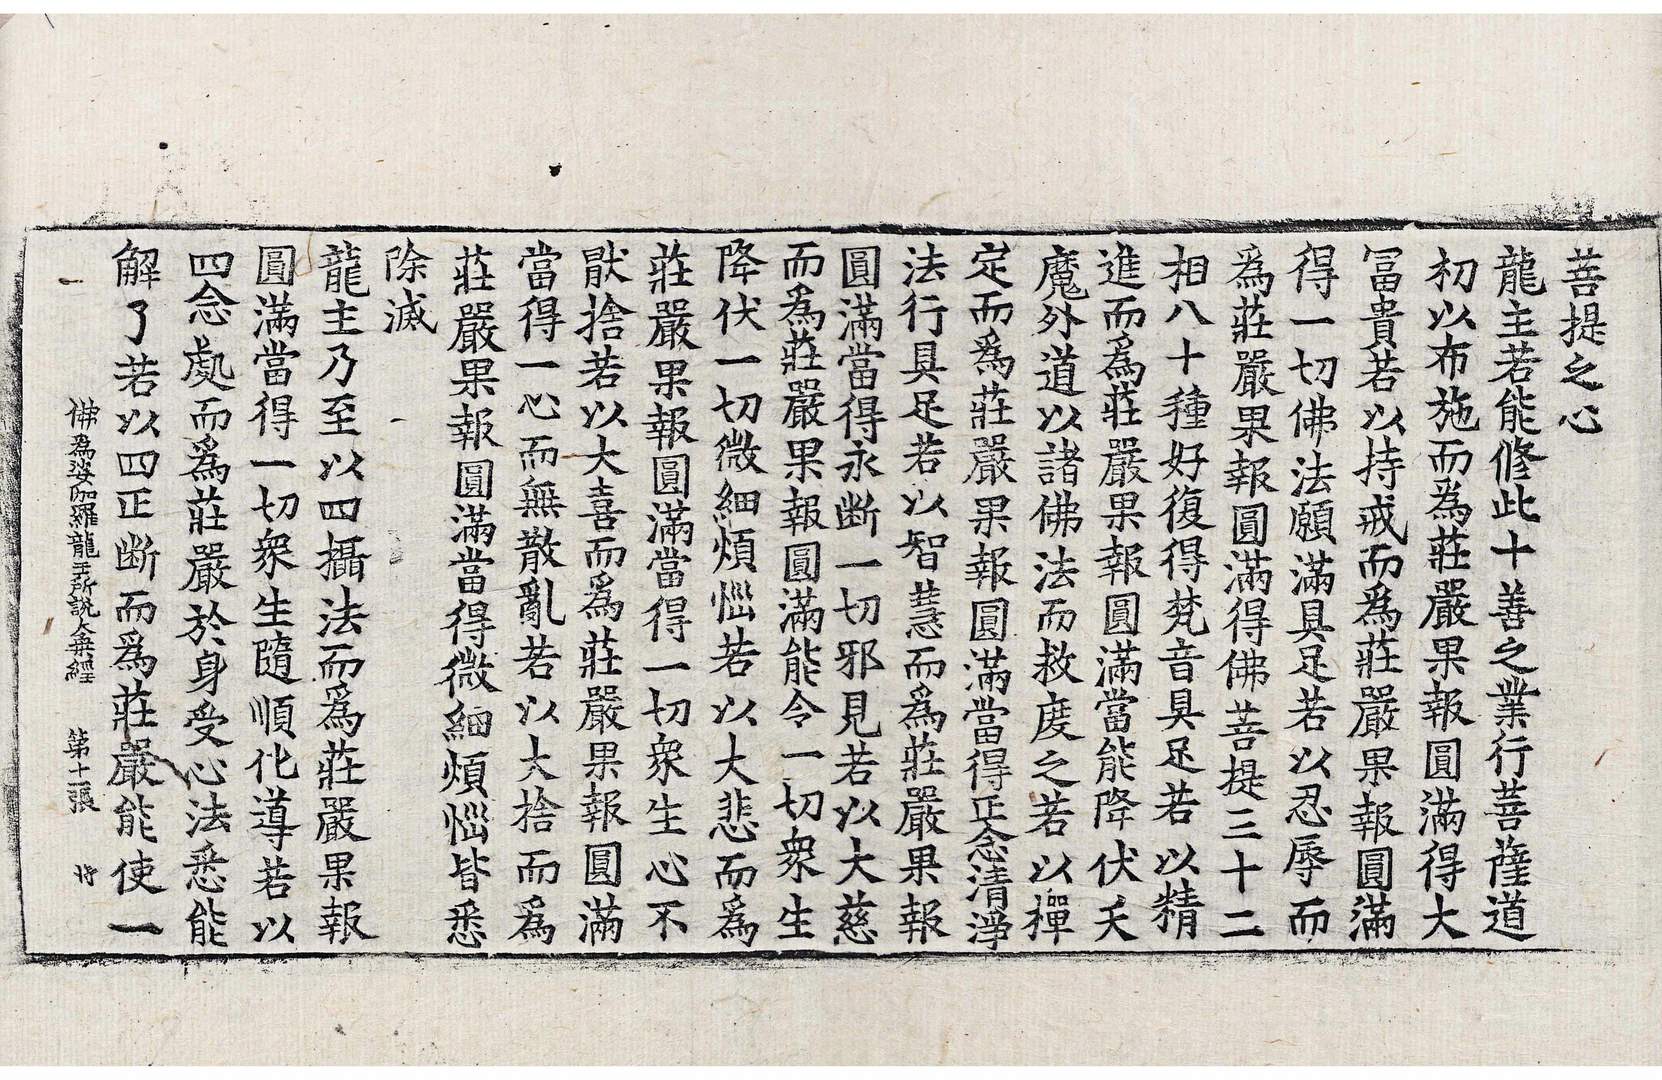 菩提之心
龍主若能修此十善之業行菩薩道
初以布施而為莊嚴果報圓滿得大
冨貴若以持戒而爲莊嚴果報圓滿
得一切佛法願滿具足若以忍辱而
爲莊嚴果報圓滿得佛菩提三十二
相八十種好復得梵音具足若以精
進而爲莊嚴果報圓滿當能降伏天
魔外道以諸佛法而救度之若以禪
定而爲莊嚴果報圓滿當得正念清淨
法行具足若以智慧而爲莊嚴果報
圓滿當得永断一切邪見若以大慈
而爲莊嚴果報圓滿能令一切衆生
降伏一切微細煩惱若以大悲而爲
莊嚴果報圓滿當得一切衆生心不
猒捨若以大喜而爲莊嚴果報圓滿
當得一心而無散亂若以大捨而爲
莊嚴果報圓滿當得微細煩惱皆悉
除滅
龍主乃至以四攝法而爲莊嚴果報
圓滿當得一切衆生隨順化導若以
四念處而爲莊嚴於身受心法悉能
解了若以四正断而爲莊嚴能使一
佛為娑伽羅龍王所說大乗經 第十一張